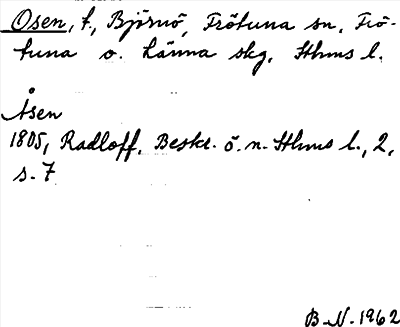 Osen, t., Björnö, Frötuna sn, Frö-
tuna o. Länna skg, Sthms l.
Åsen
1805, Radloff. Beskr. ö. n. Sthms l., 2,
s. 7
B-N. 1962